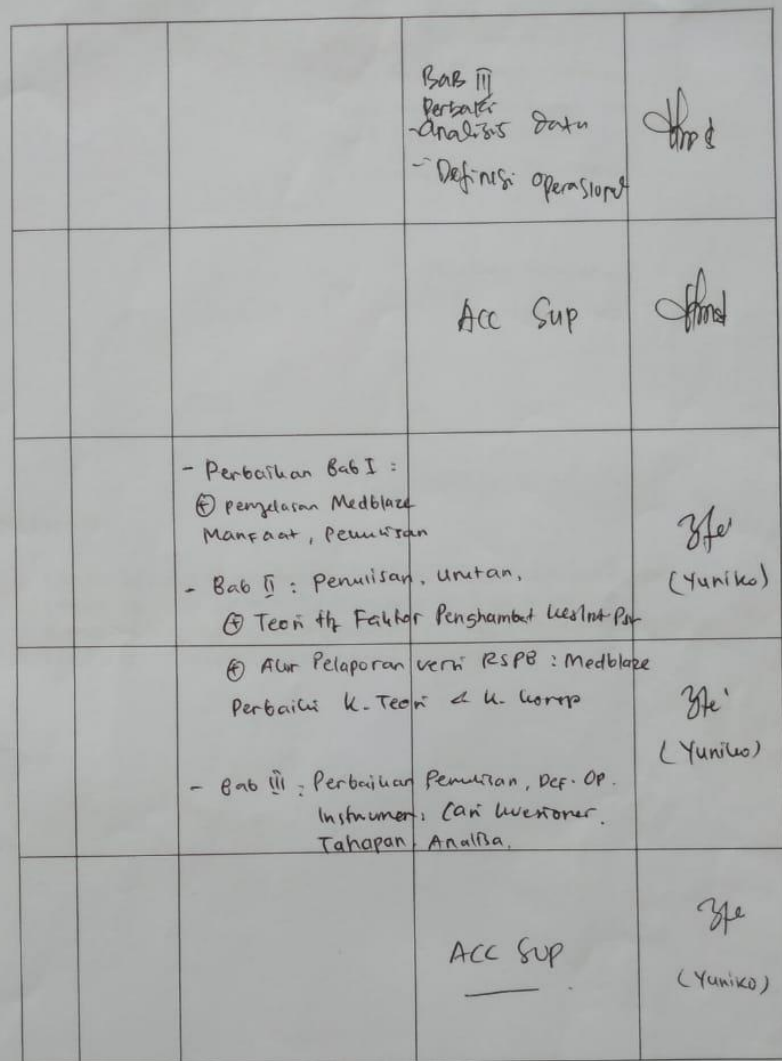 Bab III
Perbaiki
- Analisis Data
- Definisi Operasional
ACC Sup
- Perbaikan Bab I :
⊕ penjelasan Medblaze
Manfaat, Penulisan
(Yuniko)
- Bab II : Penulisan, urutan,
⊕ Teori ttg Faktor Penghambat
⊕ Alur Pelaporan versi RSPB : Medblaze
Perbaiki K. Teori & K. Konsep
(Yuniko)
- Bab III : Perbaikan Penulisan, Def. Op.
Instrumen : Cari kuesioner.
Tahapan Analisa.
ACC Sup
(Yuniko)